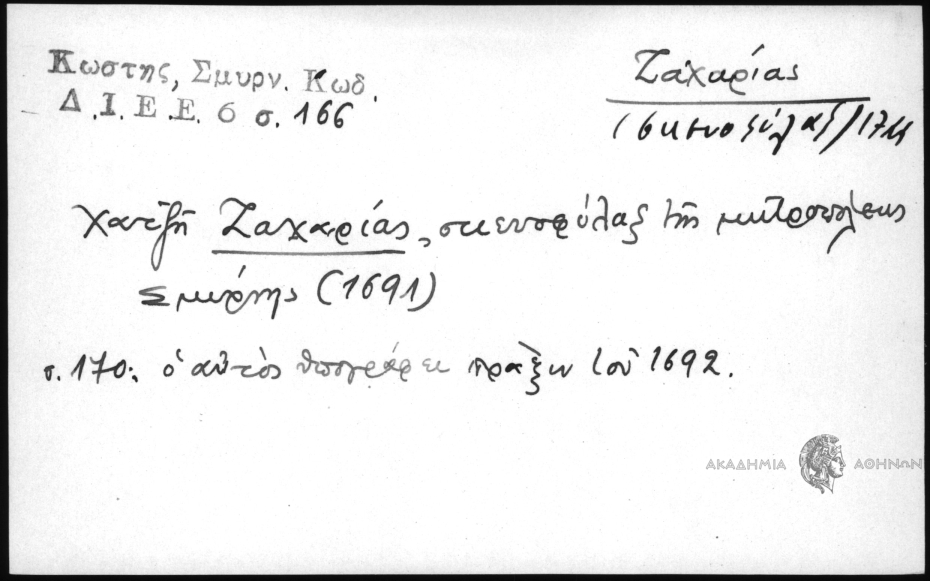 Κωστης, Σμυρν. Κωδ.
Δ.Ι.Ε.Ε. 6 σ. 166
Ζαχαρίας
(σκευοφύλαξ)
Χατζῆ Ζαχαρίας, σκευοφύλαξ τῆς μητροπόλεως
Σμύρνης (1691)
σ. 170: ὁ αὐτὸς ὑπογράφει πρᾶξιν τοῦ 1692.
ΑΚΑΔΗΜΙΑ ΑΘΗΝΩΝ